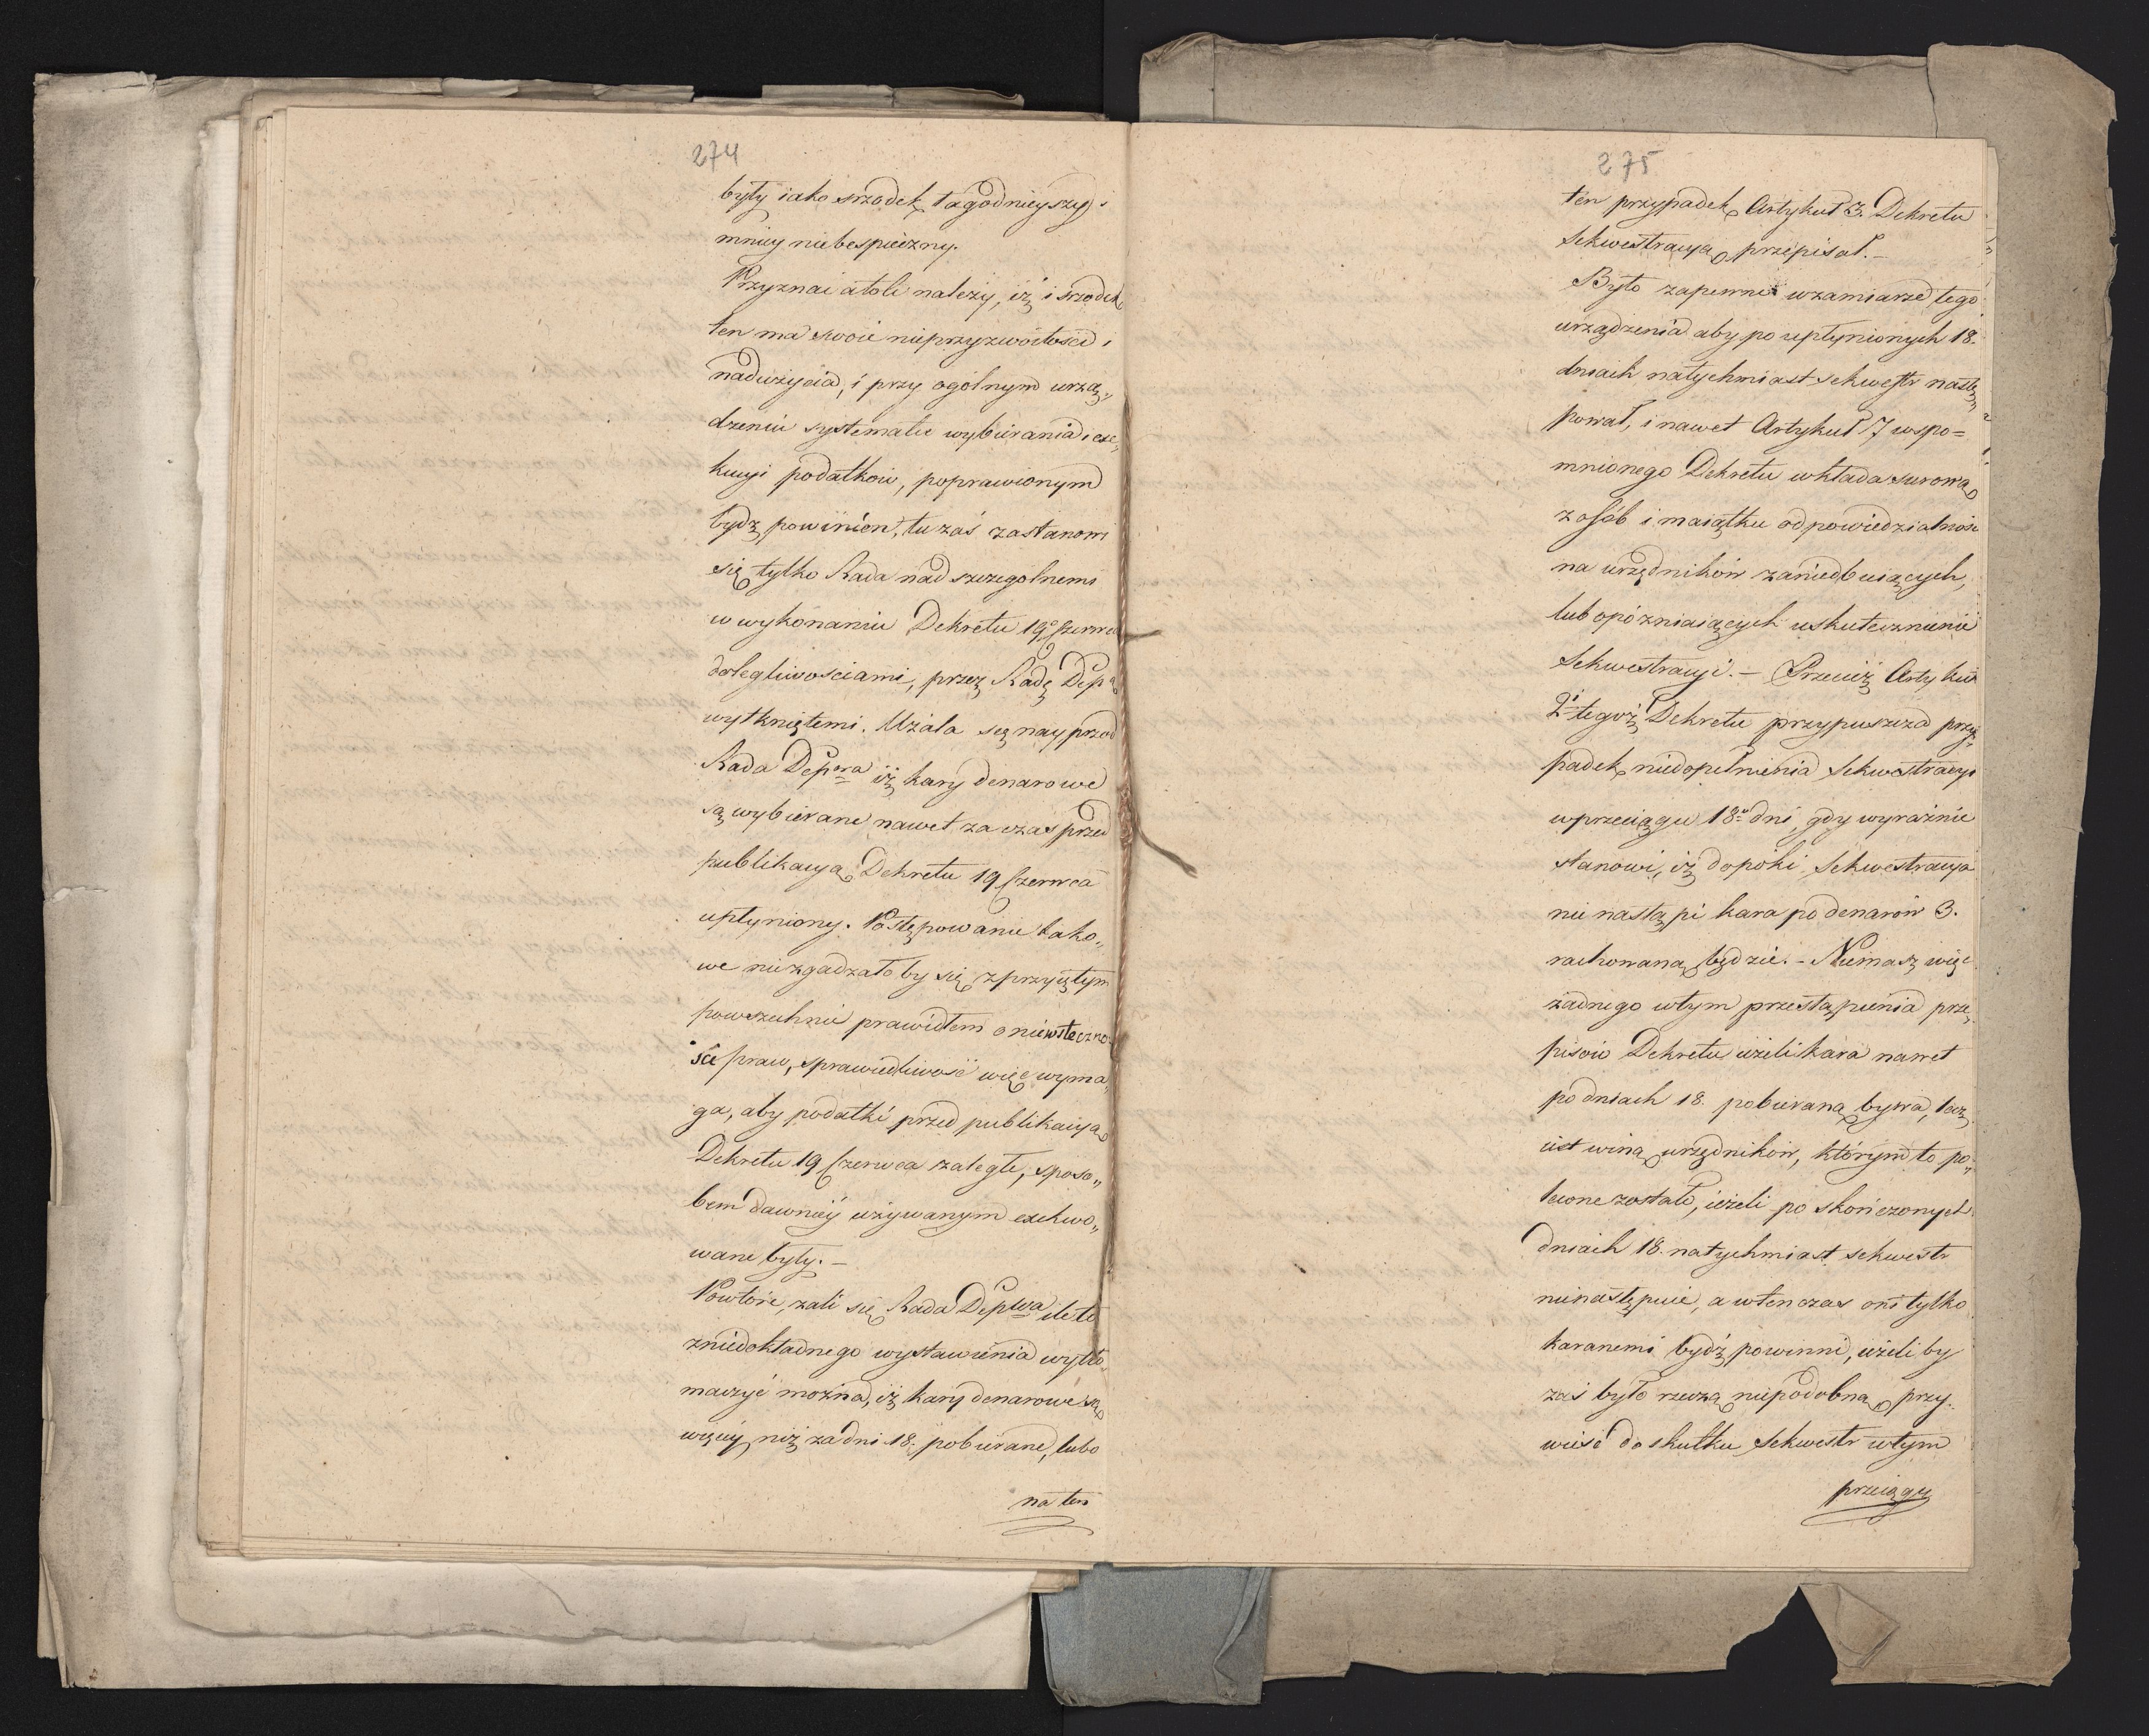 274
były iako srzodek łagodnieyszy i
mniey niebespieczny.
Przyznai atoli należy, iż i srzodek
ten ma swoie nieprzyzwoitości i
nadużycia, i przy ogólnym urzą„
dzeniu systematu wybierania i exe„
kucyi podatkow, poprawionym
bydź powinien, tu zaś zastanowi
się tylko Rada nad szczegolnemi
w wykonaniu Dekretu 19º Czerwca
dolegliwościami, przez Radę Depą
wytkniętemi. Użala się nayprzod
Rada Depwa iż kary denarowe
są wybierane nawet za czas przed
publikacyą Dekretu 19 Czerwca
upłyniony. Postępowanie tako„
we niezgadzałoby się z przyiętym
powszechnie prawidłem o niewsteczno„
ści praw, sprawiedliwość więc wyma„
ga, aby podatki przed publikacyą
Dekretu 19 Czerwca zaległe, sposo„
bem dawniey używanym exekwo„
wane były. –
Powtóre, żali się Rada Deptwa ile to
z niedokładnego wystawienia wytło„
maczyć można, iż kary denarowe są
więcey niż za dni 18. pobierane, lubo
na ten
275
ten przypadek Artykuł 3. Dekretu
Sekwestracyą przepisał. –
Było zapewne w zamiarze tego
urządzenia aby po upłynionych 18.
dniach natychmiast sekwestr nastę„
pował, i nawet Artykuł 7 wspo=
mnionego Dekretu wkłada surową
z osób i maiątku odpowiedzialność
na urzędników zaniedbuiących,
lub opóźniaiących uskutecznienie
Sekwestracyi. – Przecież Artykuł
2i tegoż Dekretu przypuszcza przy„
padek niedopełnienia Sekwestracyi
w przeciągu 18u dni gdy wyraźnie
stanowi, iż dopóki Sekwestracya
nie nastąpi kara po denarów 3.
rachowaną będzie. – Niemasz więc
żadnego w tym przestąpienia prze„
pisów Dekretu ieżeli kara nawet
po dniach 18. pobieraną bywa, lecz
iest winą urzędników, którym to po„
lecone zostało, ieżeli po skończonych
dniach 18. natychmiast sekwestr
nienastępuie, a wtenczas oni tylko
karanemi bydź powinni, ieżeliby
zaś było rzeczą niepodobną przy„
wieść do skutku Sekwestr w tym
przeciągu